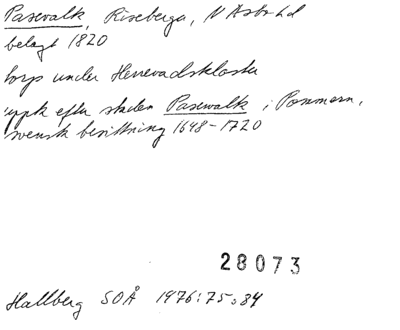 Pasewalk, Riseberga, N Åsbo hd
belagt 1820
torp under Herrevadskloster
uppk efter staden Pasewalk i Pommern,
svensk besittning 1648-1720
28073
Hallberg SOÅ 1976:75:84